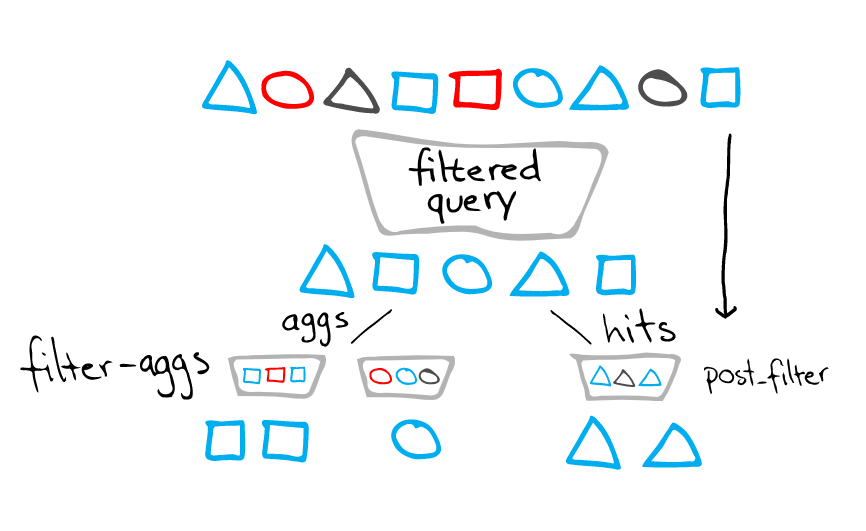 filtered
query
aggs
hits
filter-aggs
post_filter